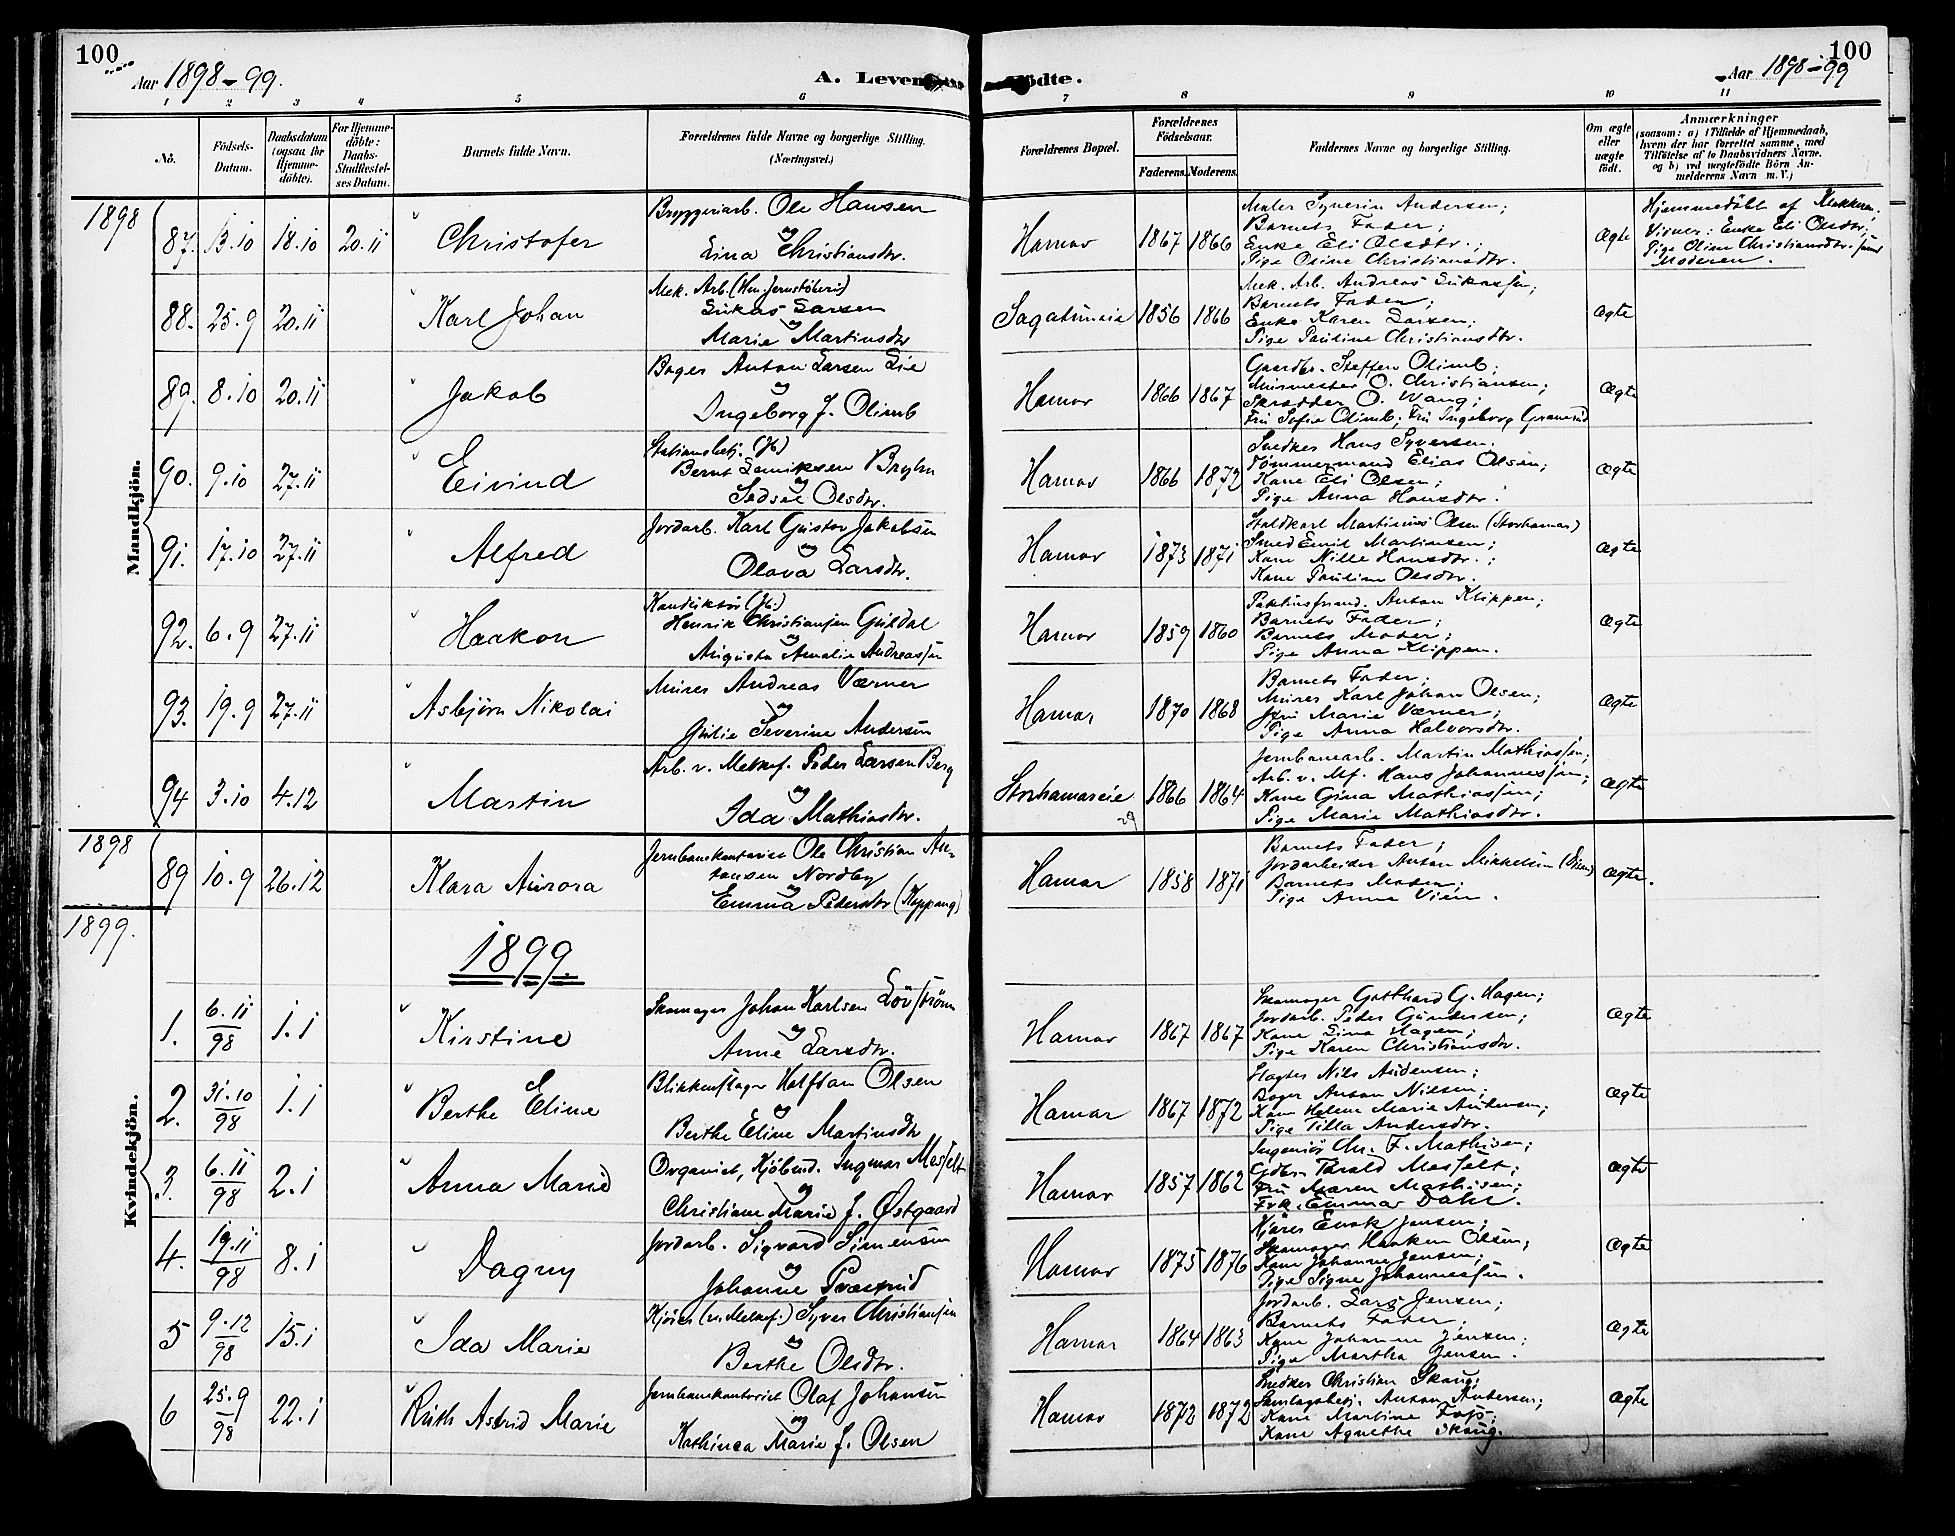 100
100
Aar 1898-99.
A. Levende
fødte.
Aar 1898-99
1 2 3 4 5 6 7 8 9 10 11
No.
Fødsels-Datum.
Daabsdatum (ogsaa for Hjemme-døbte).
For Hjemme-døbte: Daabs-Stadfæstel-ses Datum.
Barnets fulde Navn.
Forældrenes fulde Navne og borgerlige Stilling. (Næringsvei.)
Forældrenes Bopæl.
Forældrenes Fødselsaar.
Faderens. Moderens.
Faddernes Navne og borgerlige Stilling.
Om ægte eller uægte født.
Anmærkninger
(saasom: a) i Tilfælde af Hjemmedaab,
hvem der har forrettet samme, med
Tilføielse af to Daabsvidners Navne,
og b) ved uægtefødte Børn An-
melderens Navn m. V.)
Mandkjøn.
1898
87. 13.10 18.10 20.11 Christofer
Bryggeriarb. Ole Hansen
og
Lina Christiansdtr.
Hamar 1867 1866
Maler Syverin Andersen;
Barnets Fader;
Enke Eli Olsdtr.;
Pige Oline Christiansdtr.
Ægte
Hjemmedøbt af
Vidner: Enke Eli Olsdtr.;
Pige Oline Christiansdtr. samt
Moderen.
88. 25.9 20.11 Karl Johan
Mek. Arb. (Ham. Jernstøberi)
Lukas Larsen
og
Marie Martinsdtr
Sagatuneie 1856 1866
Mek. Arb. Andreas Lukassen;
Barnets Fader;
Enke Karen Larsen;
Pige Pauline Christiansdtr.
Ægte
89. 8.10 20.11 Jakob
Bager Anton Larsen Lie
og
Ingeborg f. Olimb
Hamar 1866 1867
Gaardbr. Steffen Olimb;
Murmester O. Christiansen;
Skrædder O. Wang;
Fru Sofie Olimb; Fru Ingeborg
Ægte
90. 9.10 27.11 Eivind
Stationsbetj. (H)
Bernt Bryhn
og
Olsdtr.
Hamar 1866 1872
Snedker Hans Syversen.
Tømmermand Elias Olsen;
Kone Eli Olsen;
Pige Anna Hansdtr.
Ægte
91. 17.10 27.11 Alfred
Jordarb. Karl Gustav Jakobsen
og
Olava Larsdtr.
Hamar 1873 1871
Staldkarl Martinius Olsen (Storhamar)
Smed Emil Martinsen;
Kone Nille Hansdtr.;
Kone Pauline Olsdtr.
Ægte
92. 6.9 27.11 Haakon
Konduktør (H.)
Henrik Christiansen Guldal
og
Augusta Amalie Andreassen
Hamar 1859 1860
Pakhusformd. Anton Klippen;
Barnets Fader;
Barnets Moder;
Pige Anna Klippen.
Ægte
93. 19.9 27.11 Asbjørn Nikolai
Murer Andreas Værner
og
Julie Severine Andersen
Hamar 1870 1868
Barnets Fader;
Murer Karl Johan Olsen;
Fru Marie Værner;
Pige Anna Halvorsdtr.
Ægte
94 3.10 4.12 Martin
Arb. v. Melkef. Peder Larsen Berg
og
Ida Mathiasdtr.
Storhamareie 1866 1864
29
Jernbanearb. Martin Mathiassen;
Arb. v. Mf. Hans Johannessen;
Kone Gina Mathiassen;
Pige Marie Mathiasdtr.
Ægte
1898
89 10.9 26.12 Klara Aurora
Jernbanekontorist Ole Christian An-
tonsen Nordby
og
Emma Pedersdtr (Koppang)
Hamar 1858 1871
Barnets Fader;
Jordarbeider Anton Mikkelsen
Barnets Moder;
Pige Anna Vien.
Ægte.
1899.
1899.
Kvindekjøn.
1. 6.11/98 1.1 Kirstine
Skomager Johan Karlsen Lövström
og
Anne Larsdtr.
Hamar 1867 1867
Skomager Gotthard G. Hagen;
Jordarb. Peder Gundersen;
Kone Lina Hagen;
Pige Karen Christiansdtr.
Ægte
2. 31.10/98 1.1 Berthe Eline
Blikkenslager Halfdan Olsen
og
Berthe Eline Martinsdtr
Hamar 1867 1872
Slagter Nils Andersen;
Bager Anton Nilsen;
Kone Helene Marie Andersen;
Pige Tilla Andersdtr.
Ægte
3. 6.11/98 2.1 Anna Marie
Organist, Kjøbmd. Ingmar Messelt
og
Christiane Marie f. Østgaard
Hamar 1857 1862
Ingeniør Chr. F. Mathisen;
Gdbr. Tarald Messelt;
Fru Maren Mathisen;
Frk. Emma Dahl.
Ægte
4. 19.11/98 8.1 Dagny
Jordarb. Sigvard Simensen
og
Johanne Præsterud
Hamar 1875 1876
Kjører Enok Jensen;
Skomager Haaken Olsen;
Kone Johanne Jensen;
Pige Signe Johannessen.
Ægte
5 9.12/98 15.1 Ida Marie
Kjører (v. Melkef.) Syver Christiansen
og
Berthe Olsdtr.
Hamar 1864 1863
Jordarb. Lars Jensen;
Barnets Fader;
Kone Johanne Jensen;
Pige Martha Jensen.
Ægte
6 25.9/98 22.1 Ruth Astrid Marie
Jernbanekontorist Olaf Johansen
og
Kathinca Marie f. Olsen
Hamar 1872 1872
Snedker Christian Skaug;
Samlagsbetj. Anton Andersen;
Kone Martine Foss;
Kone Agnethe Skaug.
Ægte